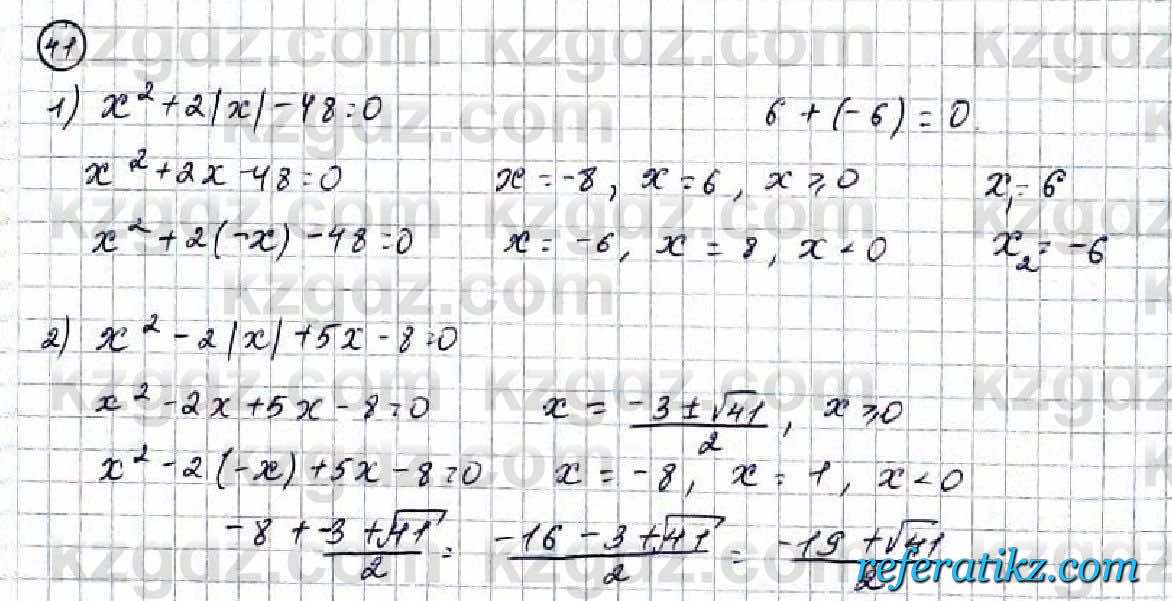 41
1) x² + 2|x| - 48 = 0     6 + (-6) = 0
x² + 2x - 48 = 0     x = -8, x = 6, x ≥ 0     x₁ = 6
x² + 2(-x) - 48 = 0     x = -6, x = 8, x < 0     x₂ = -6
2) x² - 2|x| + 5x - 8 = 0
x² - 2x + 5x - 8 = 0     x = (-3 ± √41)/2, x ≥ 0
x² - 2(-x) + 5x - 8 = 0     x = -8, x = 1, x < 0
-8 + (-3 + √41)/2 = (-16 - 3 + √41)/2 = (-19 + √41)/2
kzgdz.com
referatikz.com